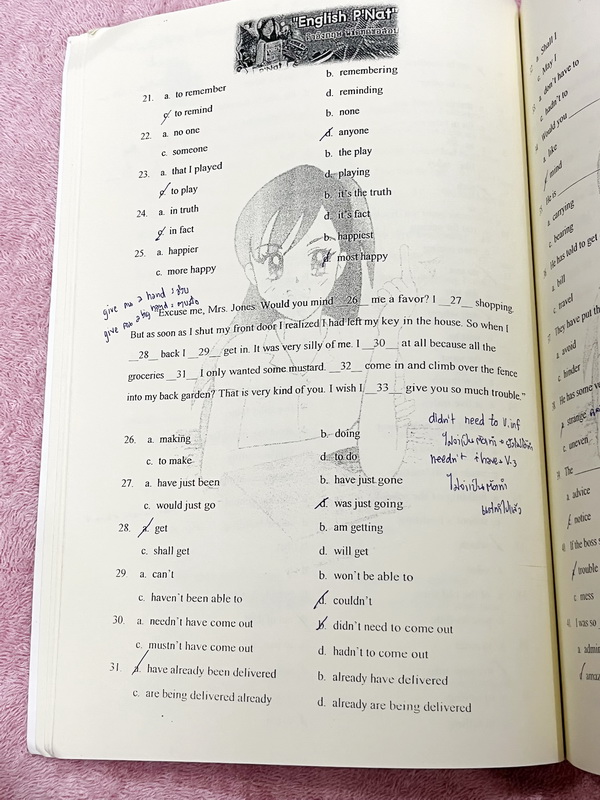 "English P'Nat"
21. a. to remember b. remembering
c. to remind d. reminding
22. a. no one b. none
c. someone d. anyone
23. a. that I played b. the play
c. to play d. playing
24. a. in truth b. it's the truth
c. in fact d. it's fact
25. a. happier b. happiest
c. more happy d. most happy
give me a hand :
"Excuse me, Mrs. Jones. Would you mind __26__ me a favor? I __27__ shopping.
But as soon as I shut my front door I realized I had left my key in the house. So when I
__28__ back I __29__ get in. It was very silly of me. I __30__ at all because all the
groceries __31__ I only wanted some mustard. __32__ come in and climb over the fence
into my back garden? That is very kind of you. I wish I __33__ give you so much trouble."
didn't need to V.inf
needn't have + V.3
26. a. making b. doing
c. to make d. to do
27. a. have just been b. have just gone
c. would just go d. was just going
28. a. get b. am getting
c. shall get d. will get
29. a. can't b. won't be able to
c. haven't been able to d. couldn't
30. a. needn't have come out b. didn't need to come out
c. mustn't have come out d. hadn't to come out
31. a. have already been delivered b. already have delivered
c. are being delivered already d. already are being delivered
a. Shall I
c. May I
a. don't have to
c. hadn't to
Would you
a. like
mind
He is
a. carrying
c. bearing
He has told to get
a. bill
c. travel
They have put th
a. avoid
c. hinder
He has some v
a. strange
c. uneven
The
a. advice
c. notice
If the boss s
trouble
c. mess
I was so
a. admir
amaz